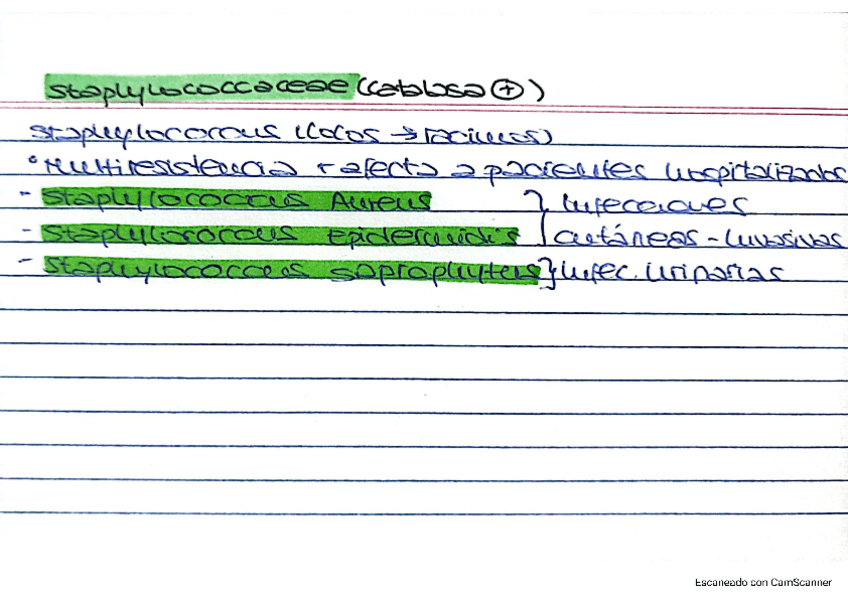 Staphylococcaceae (catalasa +)
Staphylococcus (Cocos → racimos)
° Multirresistencia + afecta a pacientes hospitalizados
- Staphylococcus Aureus } Infecciones
- Staphylococcus epidermidis cutáneas - Invasivas
- Staphylococcus saprophyters } Infec. Urinarias
Escaneado con CamScanner